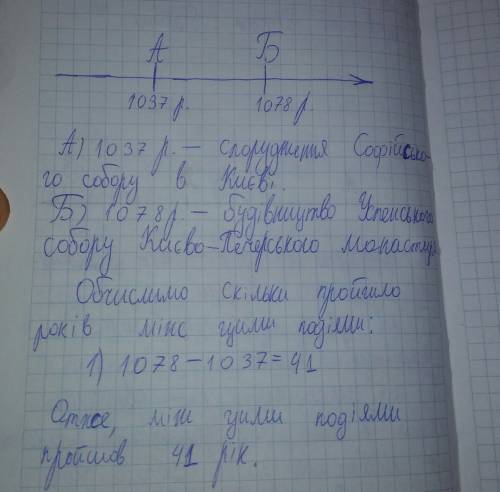 А Б
1037 р. 1078 р.
А) 1037 р. – спорудження Софійсько-
го собору в Києві.
Б) 1078 р. – будівництво Успенського
собору Києво-Печерського монастиря
Обчислимо скільки пройшло
років між цими подіями:
1) 1078 – 1037 = 41
Отже, між цими подіями
пройшов 41 рік.